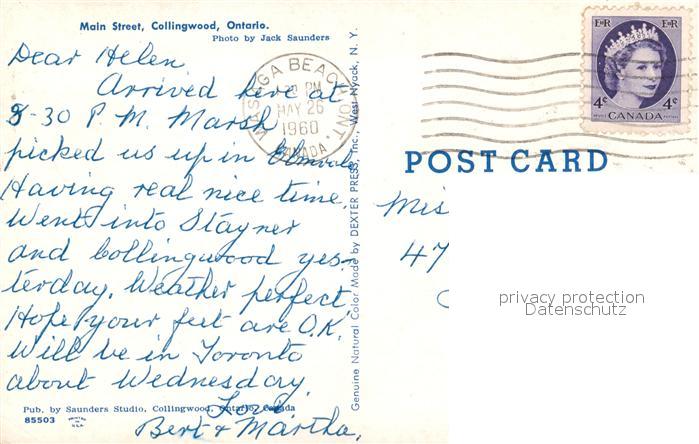 Main Street, Collingwood, Ontario.
Photo by Jack Saunders
Dear Helen
Arrived here at
8-30 P.M. Marsh
picked us up in Elmvale
Having real nice time.
Went into Stayner
and Collingwood yes-
terday. Weather perfect.
Hope your feet are O.K.
Will be in Toronto
about Wednesday.
Love
Bert & Martha.
Pub. by Saunders Studio, Collingwood, Ontario, Canada
85503 PRINTED IN U.S.A.
Genuine Natural Color Made by DEXTER PRESS, Inc., West Nyack, N. Y.
WASAGA BEACH ONT.
PM
MAY 26
1960
CANADA
E II R E II R
4¢ 4¢
POSTES CANADA POSTAGE
POST CARD
Mis
47
privacy protection
Datenschutz